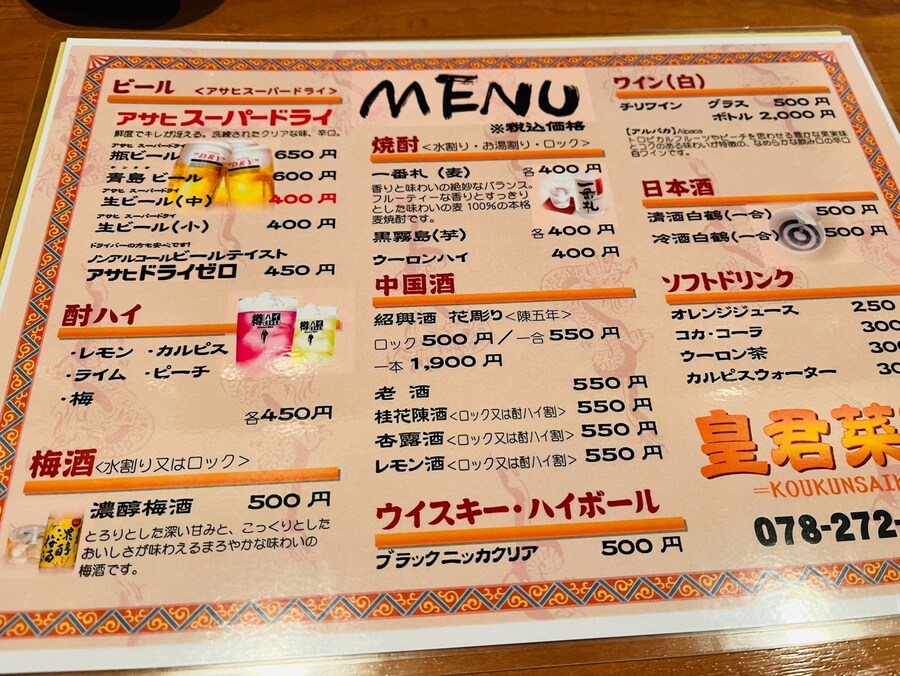 MENU
※税込価格
ビール <アサヒスーパードライ>
アサヒスーパードライ
鮮度でキレが冴える。洗練されたクリアな味、辛口。
アサヒ スーパードライ
瓶ビール 650 円
青島 ビール 600 円
アサヒ スーパードライ
生ビール(中) 400 円
アサヒ スーパードライ
生ビール(小) 400 円
ドライバーの方も安心です!
ノンアルコールビールテイスト
アサヒドライゼロ 450 円
酎ハイ
・レモン ・カルピス
・ライム ・ピーチ
・梅
各450円
梅酒<水割り又はロック>
濃醇梅酒 500 円
とろりとした深い甘みと、こっくりとした
おいしさが味わえるまろやかな味わいの
梅酒です。
焼酎<水割り・お湯割り・ロック>
一番札(麦) 各 400 円
香りと味わいの絶妙なバランス。
フルーティーな香りとすっきり
とした味わいの麦100%の本格
麦焼酎です。
黒霧島(芋) 各 400 円
ウーロンハイ 400 円
中国酒
紹興酒 花彫り<陳五年>
ロック 500 円/一合 550 円
一本 1,900 円
老 酒 550 円
桂花陳酒<ロック又は酎ハイ割> 550 円
杏露酒<ロック又は酎ハイ割> 550 円
レモン酒<ロック又は酎ハイ割> 550 円
ウイスキー・ハイボール
ブラックニッカクリア 500 円
ワイン(白)
チリワイン グラス 500 円
ボトル 2,000 円
【アルパカ】Alpaca
トロピカルフルーツやピーチを思わせる豊かな果実味
とコクのある味わいが特徴の、なめらかな飲み口の辛口
白ワインです。
日本酒
清酒白鶴(一合) 500 円
冷酒白鶴(一合) 500 円
ソフトドリンク
オレンジジュース 250
コカ・コーラ 300
ウーロン茶 300
カルピスウォーター 30
皇君菜
=KOUKUNSAIK
078-272-